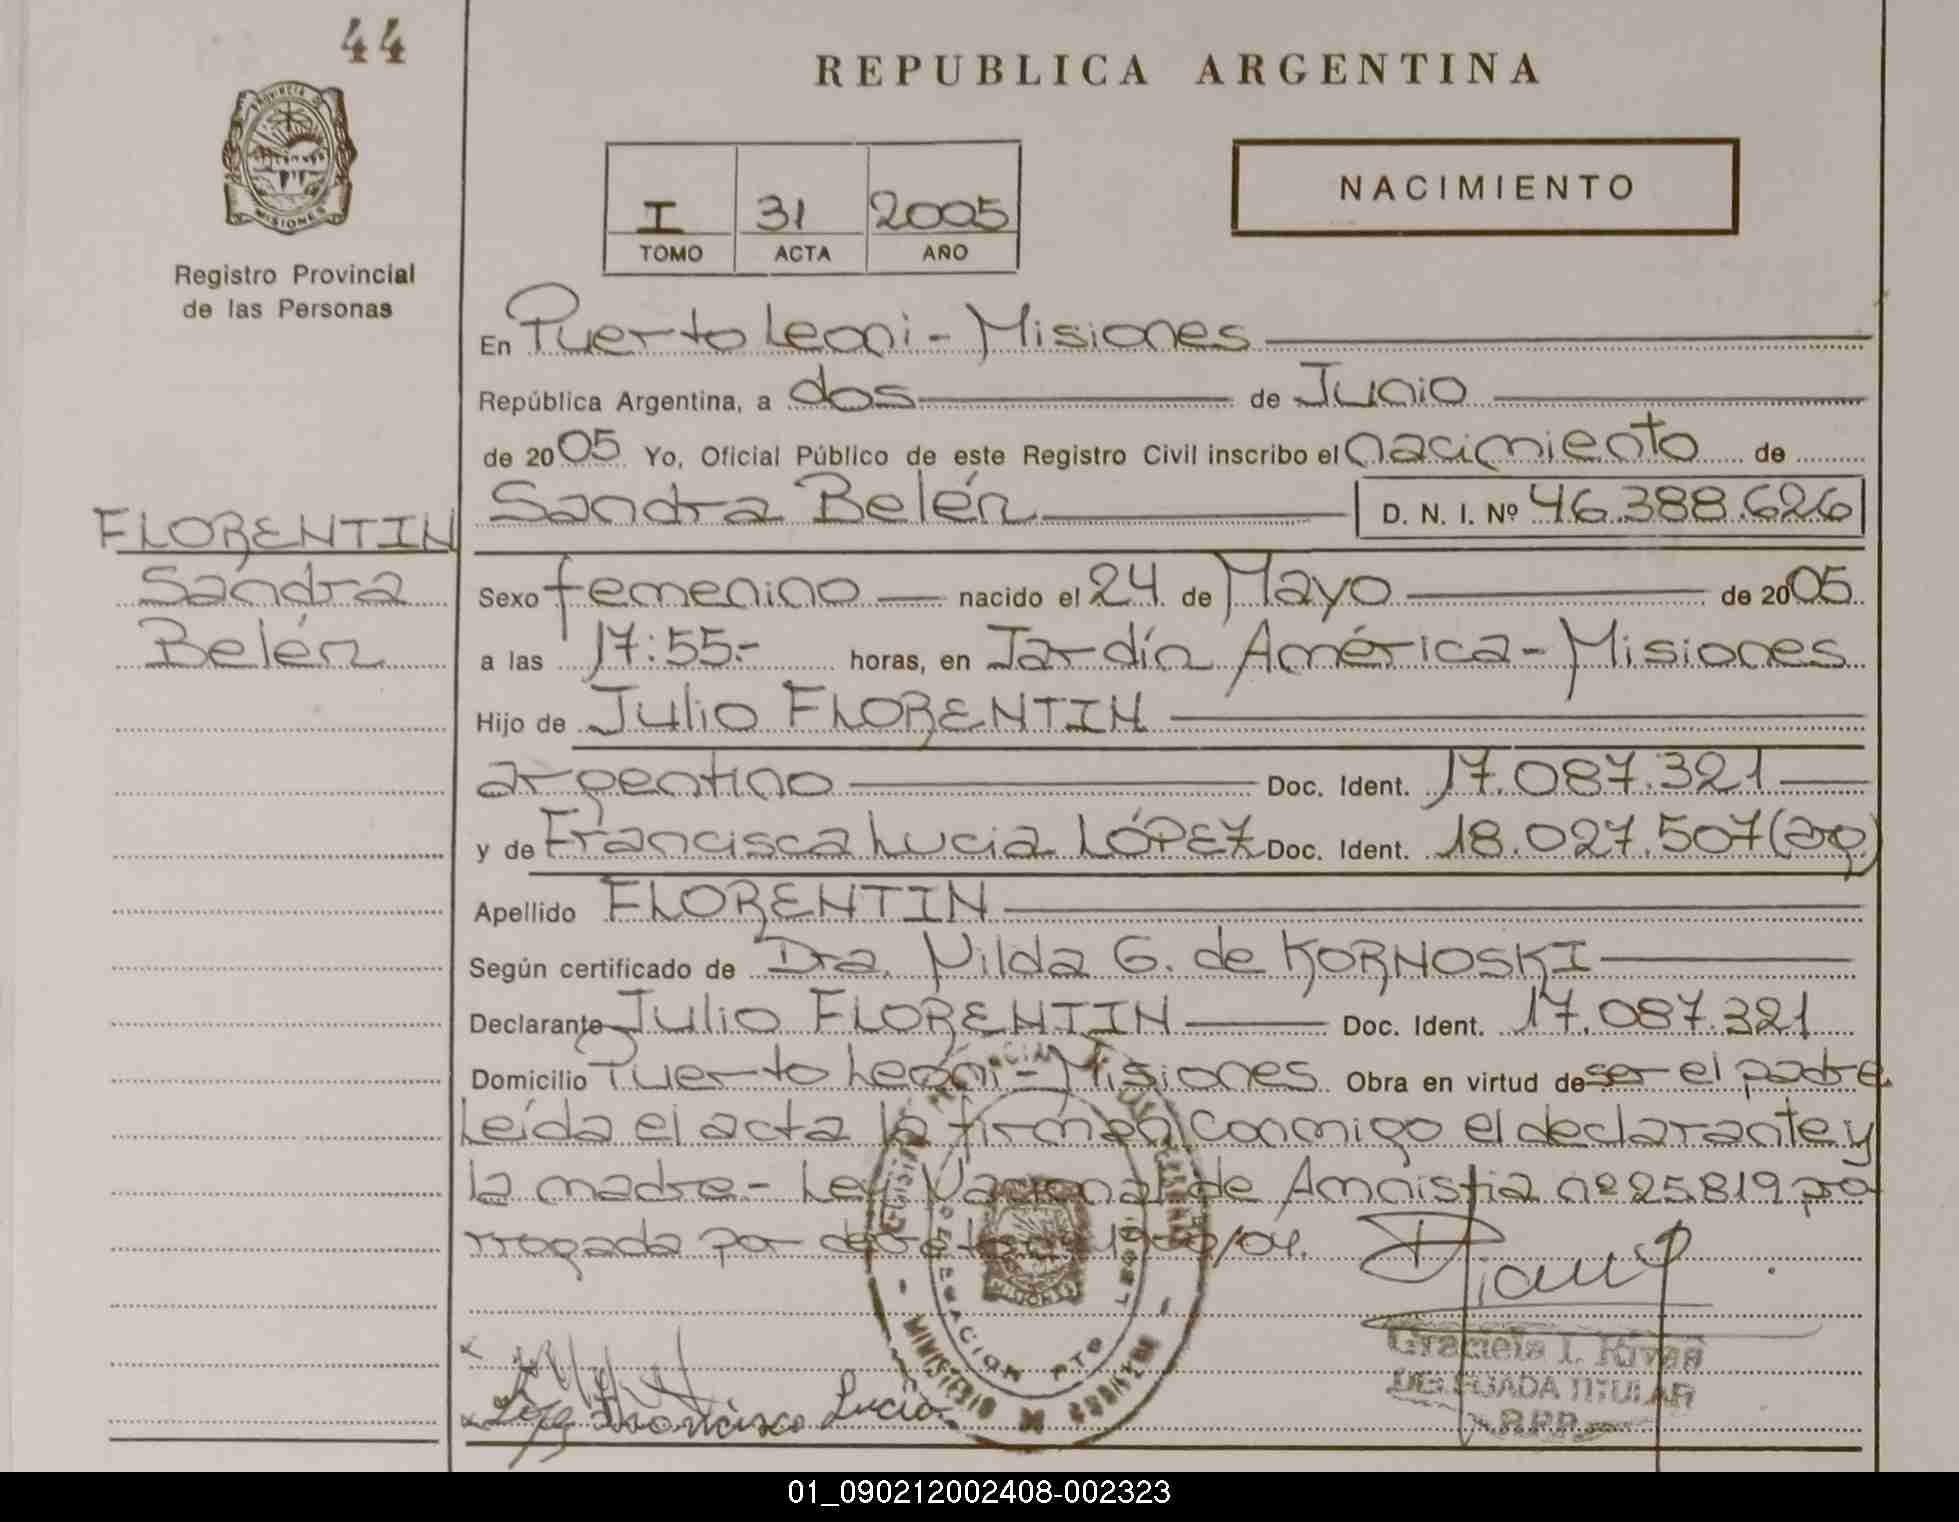 44
REPUBLICA ARGENTINA
PROVINCIA DE
MISIONES
Registro Provincial
de las Personas
I 31 2005
TOMO ACTA AÑO
NACIMIENTO
En Puerto Leoni - Misiones
República Argentina, a dos de Junio
de 2005 Yo, Oficial Público de este Registro Civil inscribo el nacimiento de
Sandra Belén D. N. I. Nº 46.388.626
FLORENTIN
Sandra
Belén
Sexo femenino nacido el 24 de Mayo de 2005
a las 17:55.- horas, en Jardín América - Misiones
Hijo de Julio FLORENTIN
argentino Doc. Ident. 17.087.321
y de Francisca Lucia LÓPEZ Doc. Ident. 18.027.507 (arg)
Apellido FLORENTIN
Según certificado de Dra. Nilda G. de KORNOSKI
Declarante Julio FLORENTIN Doc. Ident. 17.087.321
Domicilio Puerto Leoni - Misiones Obra en virtud de ser el padre
Leída el acta la firman conmigo el declarante y
la madre - Ley Nacional de Amnistia nº 25819 pro
rrogada por decreto /04.
MINISTERIO DE GOBIERNO
DELEGACION PTO LEONI
MISIONES
Graciela I. Rivas
DELEGADA TITULAR
R.P.P.
Francisca Lucia
01_090212002408-002323